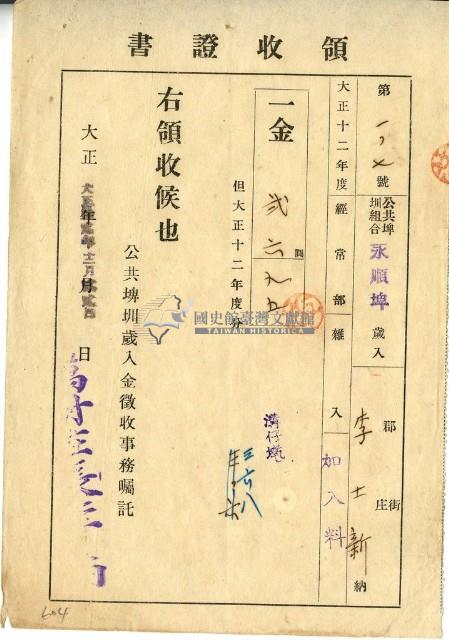 領收證書
第 一〇七 號 公共埤圳組合 永順埤 歲入 郡 街庄 李士新 納
大正十二年度 經常部 雜入 加入料
一金 貳六九五
但大正十二年度分
溝仔墘
三六八
右領收候也
公共埤圳歲入金徵收事務囑託
大正 年 月 日
國史館臺灣文獻館
TAIWAN HISTORICA
604